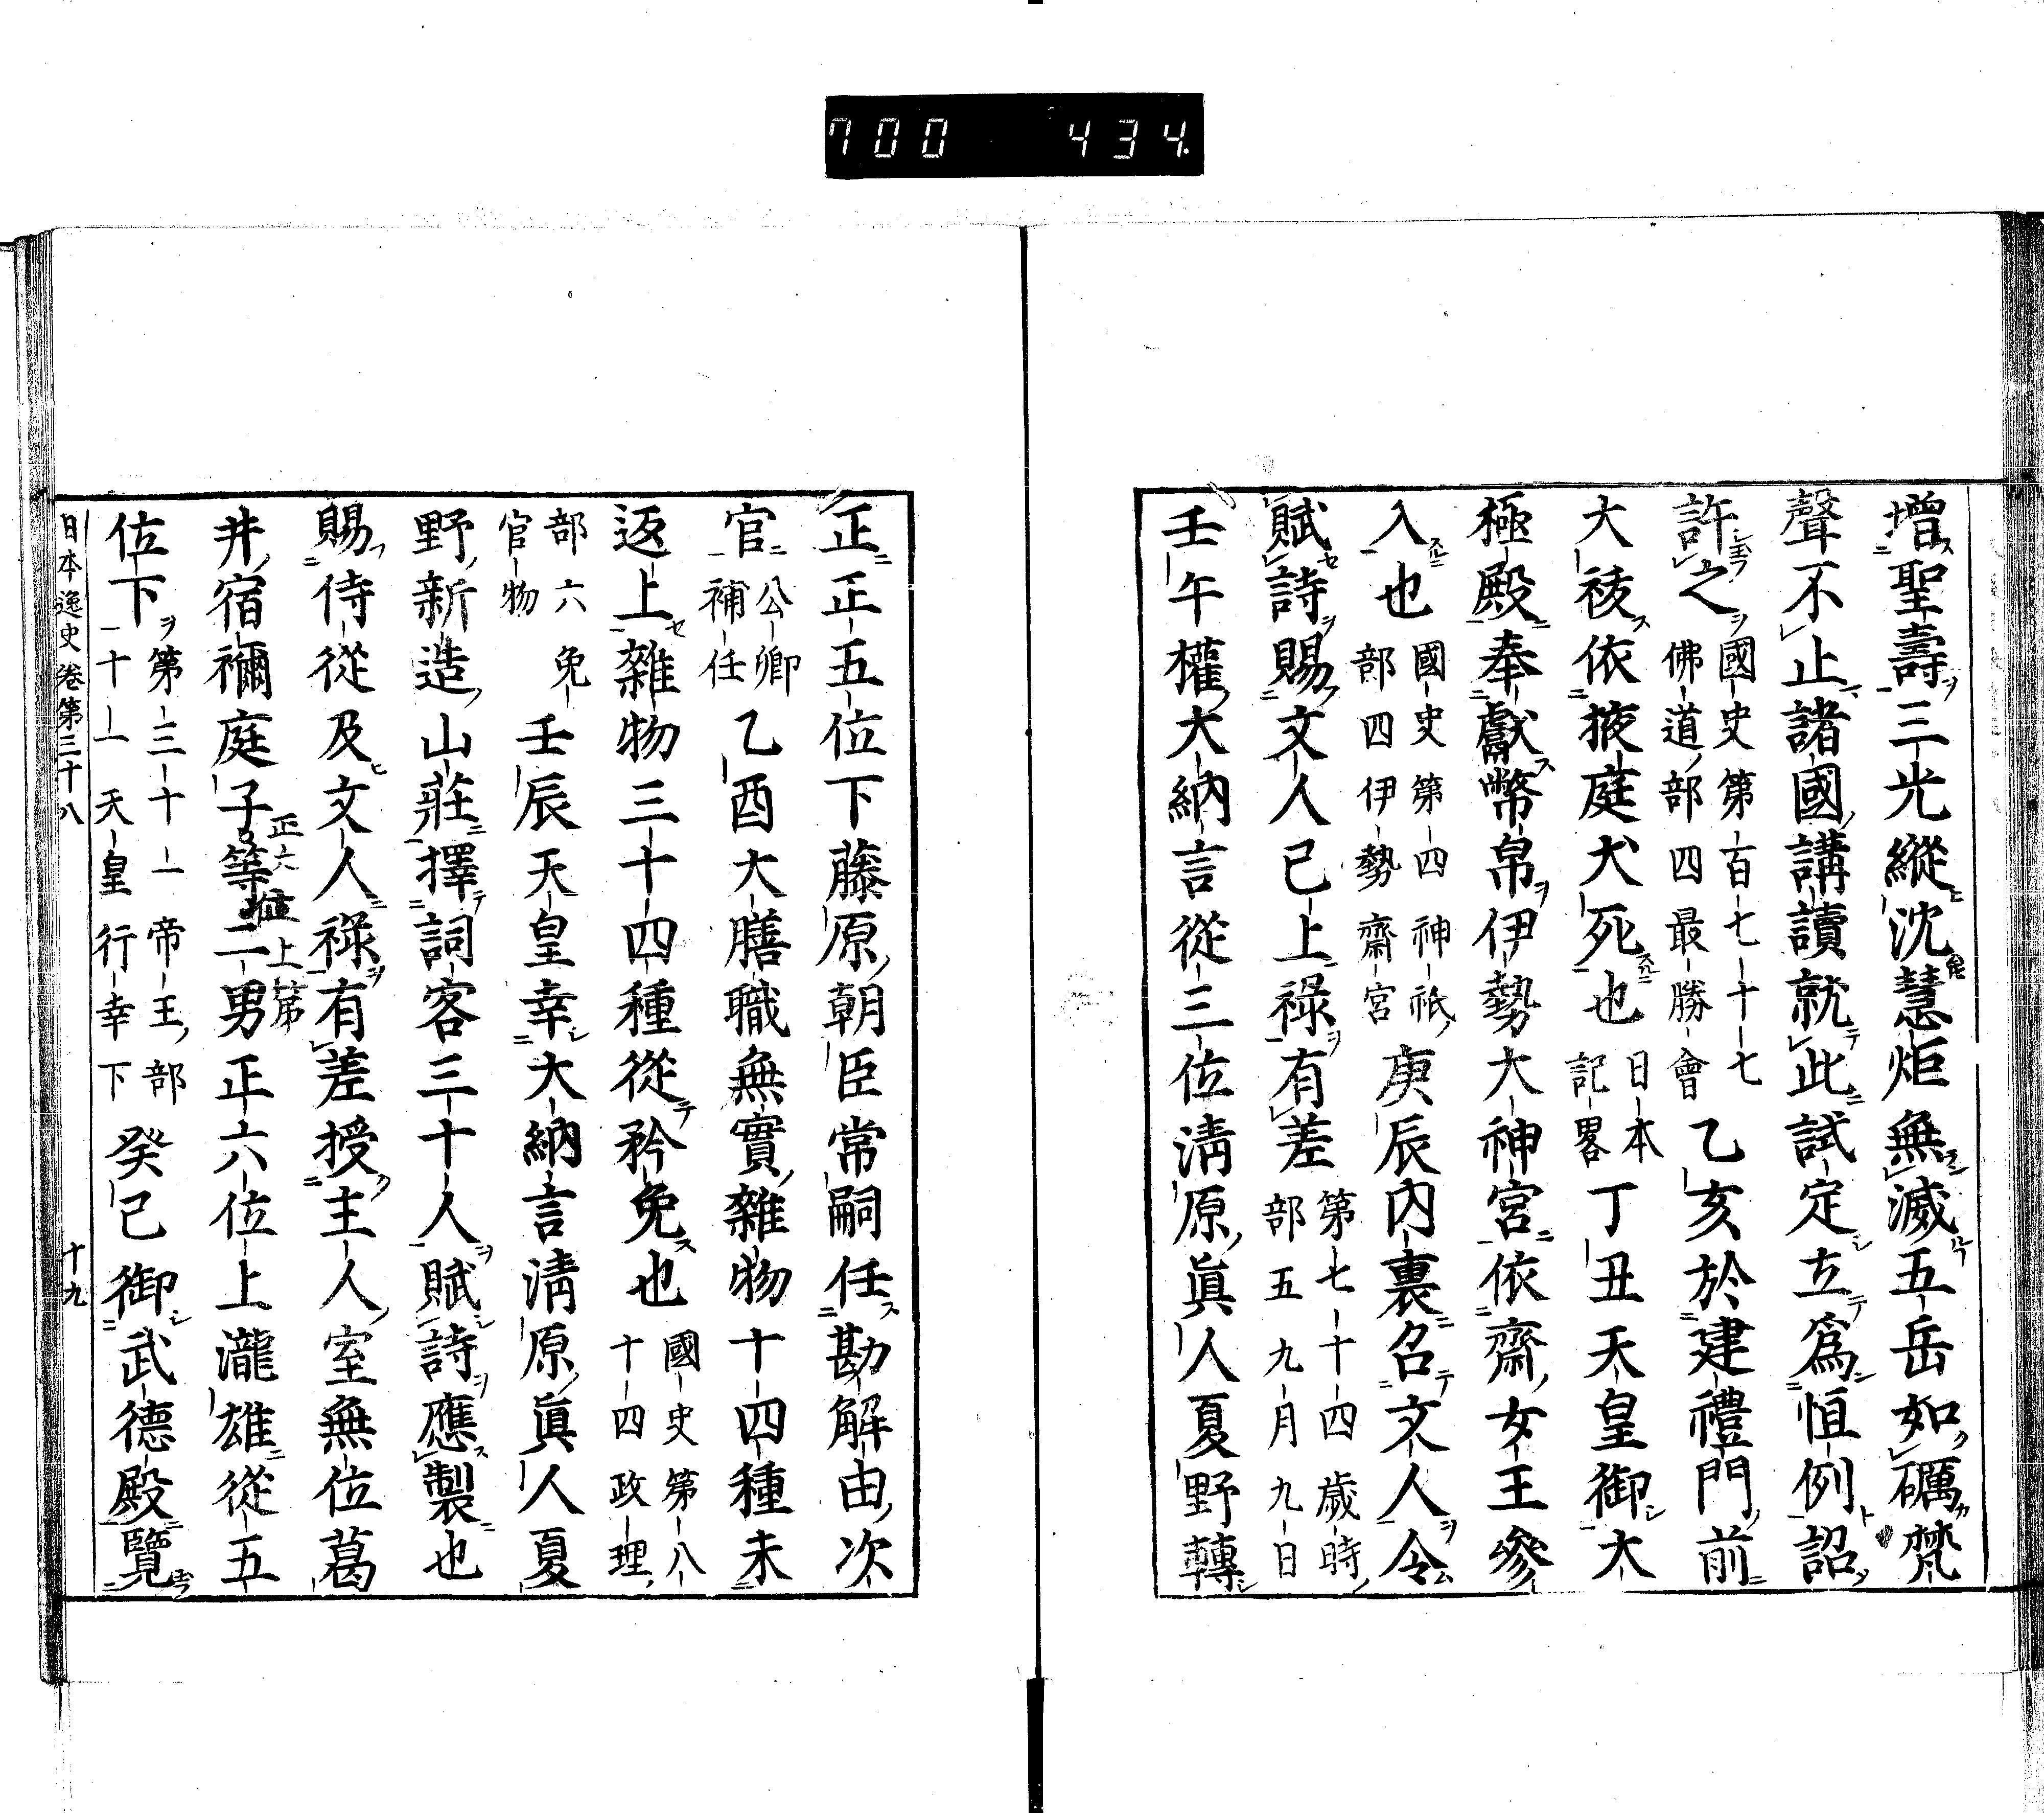 700 434
增聖壽三光縱沈慧炬無滅五岳如礪梵
聲不止諸國講讀就此試定立爲恒例詔
許之國史第百七十七佛道部四最勝會乙亥於建禮門前
大祓依掖庭犬死也日本記畧丁丑天皇御大
極殿奉獻幣帛伊勢大神宮依齋女王參
入也國史第四神祇部四伊勢齋宮庚辰內裏召文人令
賦詩賜文人已上祿有差第七十四歲時部五九月九日
壬午權大納言從三位淸原眞人夏野轉
正正五位下藤原朝臣常嗣任勘解由次
官公卿補任乙酉大膳職無實雜物十四種未
返上雜物三十四種從矜免也國史第八十四政理
部六免官物壬辰天皇幸大納言淸原眞人夏
野新造山莊擇詞客三十人賦詩應製也
賜侍從及文人祿有差授主人室無位葛
井宿禰庭子等二男正六位上瀧雄從五
正六 上第
位下第三十一帝王部十一天皇行幸下癸巳御武德殿覽
日本逸史卷第三十八 十九